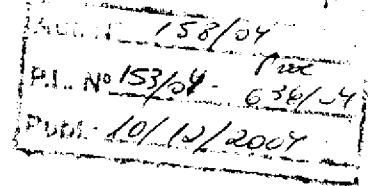 Nº 158/04
P.L. Nº 153/04 - Proc
636/04
Publ.: 10/12/2004